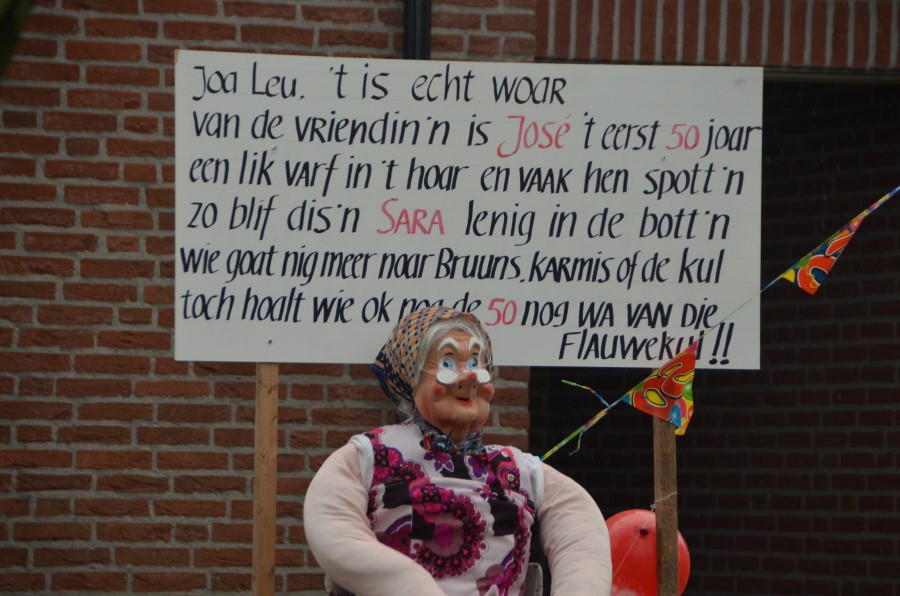 Joa Leu. 't is echt woar
van de vriendin'n is José 't eerst 50 joar
een lik varf in 't hoar en vaak hen spott'n
zo blif dis'n SARA lenig in de bott'n
wie goat nig meer naar Bruuns, KARMIS of de kul
toch hoalt wie ok nog de 50 nog wa van die
Flauwekul !!